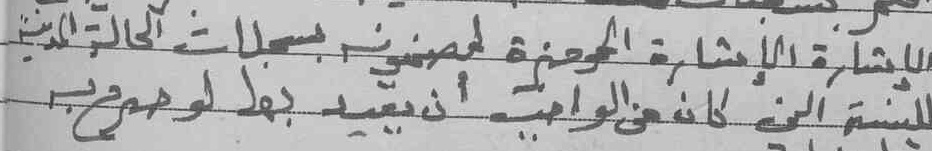 الإشارة الإشارة الموجزة لمضمونه بسجلات الحالة المدنية
للسنة التي كان من الواجب أن يقيد بها لو صرح به